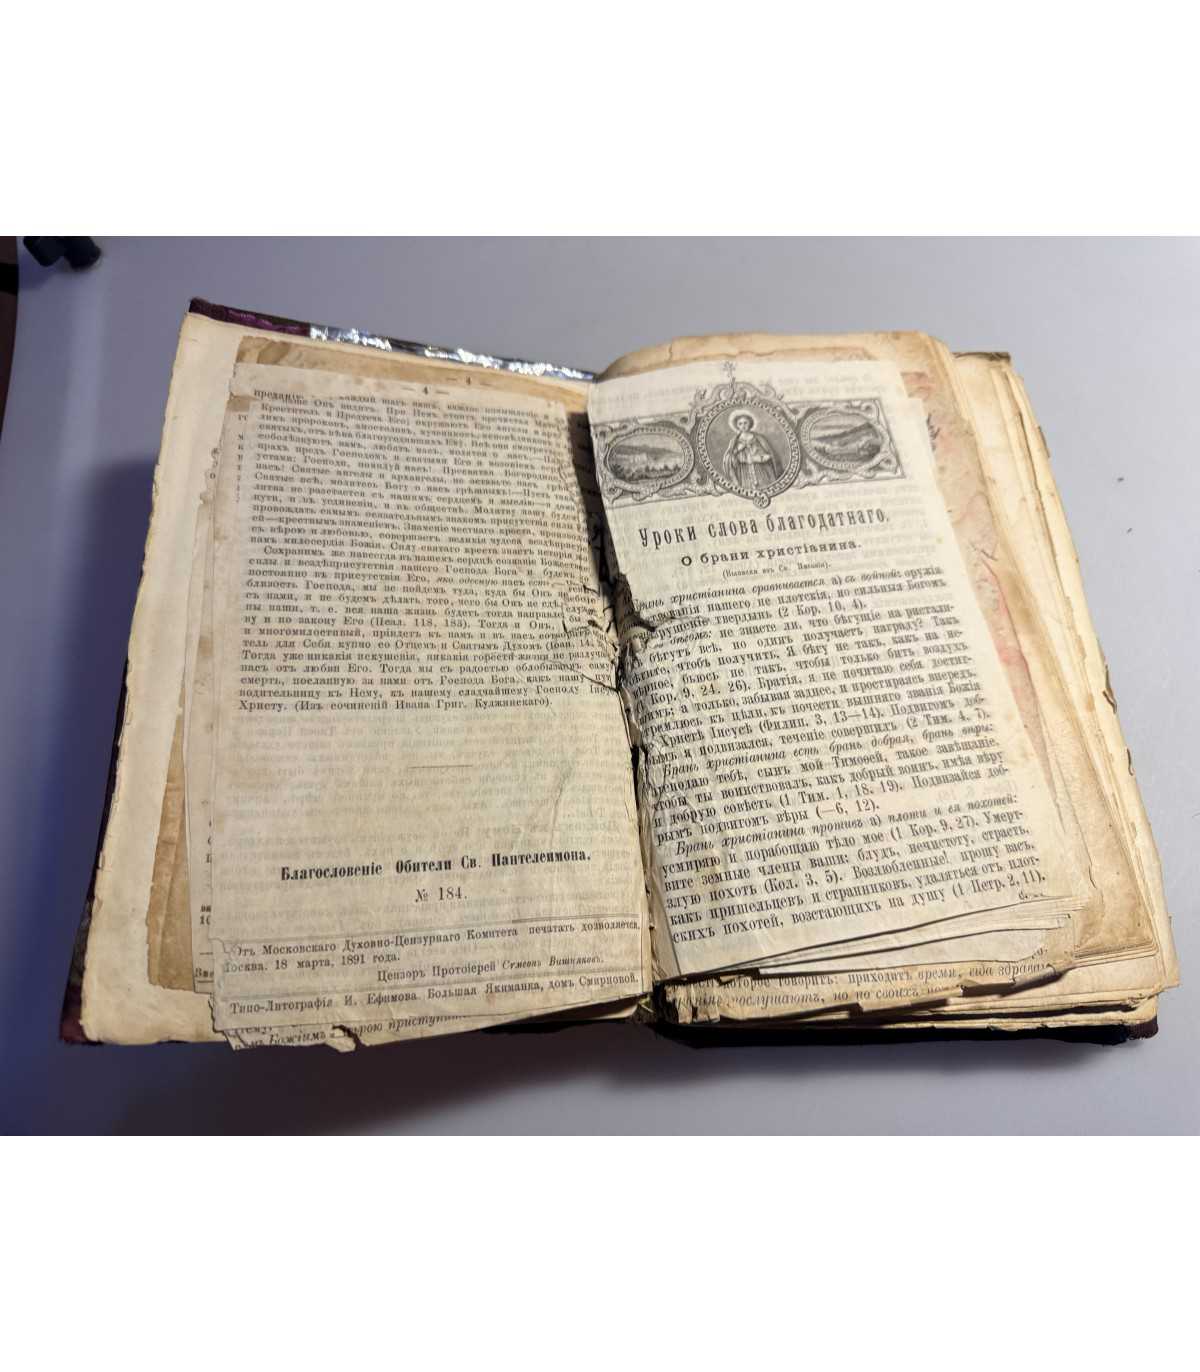 — 4 —
— 4 —
каждый шагъ нашъ, каждое помышленіе и
Онъ видитъ. При Немъ стоитъ пречистая
Креститель и Предтеча Его; окружаютъ Его ангелы и
ликъ пророковъ, апостоловъ, мучениковъ,
святыхъ, отъ вѣка благоугодившихъ Ему. Всѣ они
соболѣзнуютъ намъ, любятъ насъ, молятся о насъ.
предъ Господомъ и святыми Его и возопіемъ
устами: Господи, помилуй насъ! Пресвятая
насъ! Святые ангелы и архангелы, не оставьте насъ
Святые всѣ, молитесь Богу о насъ грѣшныхъ!—Пусть
литва не разстается съ нашимъ сердцемъ и мыслію—и дома,
пути, и въ уединеніи, и въ обществѣ. Молитву нашу будемъ
провождать самымъ осязательнымъ знакомъ присутствія силы
ей—крестнымъ знаменіемъ. Значеніе честнаго креста,
съ вѣрою и любовью, совершаетъ великія чудеса
намъ милосердія Божія. Силу святаго креста знаетъ исторія
Сохранимъ же навсегда въ нашемъ сердцѣ сознаніе
силы и вездѣприсутствія нашего Господа Бога и будемъ
постоянно въ присутствіи Его, яко одесную насъ есть.
близость Господа, мы не пойдемъ туда, куда бы Онъ не
съ нами, и не будемъ дѣлать того, чего бы Онъ не
ны наши, т. е. вся наша жизнь будетъ тогда
ну и по закону Его (Псал. 118, 133). Тогда и Онъ,
и многомилостивый, пріидетъ къ намъ и въ насъ
тель для Себя купно со Отцемъ и Святымъ Духомъ (Іоан. 14,
Тогда уже никакія искушенія, никакія горести жизни не разлучатъ
насъ отъ любви Его. Тогда мы съ радостью облобызаемъ саму
смерть, посланную за нами отъ Господа Бога, какъ нашу пут
водительницу къ Нему, къ нашему сладчайшему Господу Іисусу
Христу. (Изъ сочиненій Ивана Григ. Кулжинскаго).
Благословеніе Обители Св. Пантелеимона.
№ 184.
Отъ Московскаго Духовно-Цензурнаго Комитета печатать дозволяется.
Москва. 18 марта, 1891 года.
Цензоръ Протоіерей Сумеонъ Вишняковъ.
Типо-Литографія И. Ефимова. Большая Якиманка, домъ Смирновой.
Божіимъ вѣрою приступить
Уроки слова благодатнаго.
О брани христіанина.
(Выписки изъ Св. Писанія).
Брань христіанина сравнивается а) съ войной: оружія
нашего не плотскія, но сильныя Богомъ
разрушеніе твердынь (2 Кор. 10, 4).
не знаете ли, что бѣгущіе на ристали-
бѣгутъ всѣ, но одинъ получаетъ награду? Такъ
чтобъ получить. Я бѣгу не такъ, какъ на не-
вѣрное; бьюсь не такъ, чтобы только бить воздухъ
(1 Кор. 9, 24. 26). Братія, я не почитаю себя достиг-
шимъ; а только, забывая заднее, и простираясь впередъ,
стремлюсь къ цѣли, къ почести вышняго званія Божія
Христѣ Іисусѣ (Филип. 3, 13—14). Подвигомъ доб-
рымъ я подвизался, теченіе совершилъ (2 Тим. 4, 7).
Брань христіанина есть брань добрая, брань вѣры:
преподаю тебѣ, сынъ мой Тимоѳей, такое завѣщаніе,
чтобы ты воинствовалъ, какъ добрый воинъ, имѣя вѣру
и добрую совѣсть (1 Тим. 1, 18. 19). Подвизайся доб-
рымъ подвигомъ вѣры (—6, 12).
Брань христіанина противъ а) плоти и ея похотей:
усмиряю и порабощаю тѣло мое (1 Кор. 9, 27). Умерт-
вите земные члены ваши: блудъ, нечистоту, страсть,
злую похоть (Кол. 3, 5). Возлюбленные! прошу васъ,
какъ пришельцевъ и странниковъ, удаляться отъ плот-
скихъ похотей, возстающихъ на душу (1 Петр. 2, 11).
которое говоритъ: приходитъ время, егда здраваго
послушаютъ, но по своихъ